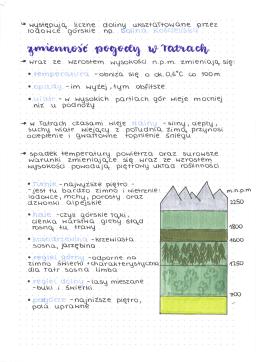 ↳ występują liczne doliny ukształtowane przez
lodowce górskie np. Dolina Kościeliska
zmienność pogody w Tatrach
↳ wraz ze wzrostem wysokości n.p.m. zmieniają się:
• temperatura - obniża się o ok. 0,6°C co 100m
• opady - im wyżej, tym obfitsze
• wiatr - w wysokich partiach gór wieje mocniej
niż u podnóży
↳ w Tatrach czasami wieje halny - silny, ciepły,
suchy wiatr wiejący z południa zimą, przynosi
ocieplenie i gwałtowne topnienie śniegu
↳ spadek temperatury powietrza oraz surowsze
warunki zmieniające się wraz ze wzrostem
wysokości powodują piętrowy układ roślinności
• turnie - najwyższe piętro -
jest tu bardzo zimno i wietrznie:
lodowce, mchy, porosty oraz
dzwonki alpejskie
• hale - czyli górskie łąki,
cienka warstwa gleby stąd
rosną tu trawy
• kosodrzewina - krzewiasta
sosna, jarzębina
• regiel górny - odporne na
zimno świerki + charakterystyczna
dla Tatr sosna limba
• regiel dolny - lasy mieszane
- buki i świerki
• podgórze - najniższe piętro,
pola uprawne
m n.p.m
2250
1800
1600
1250
700